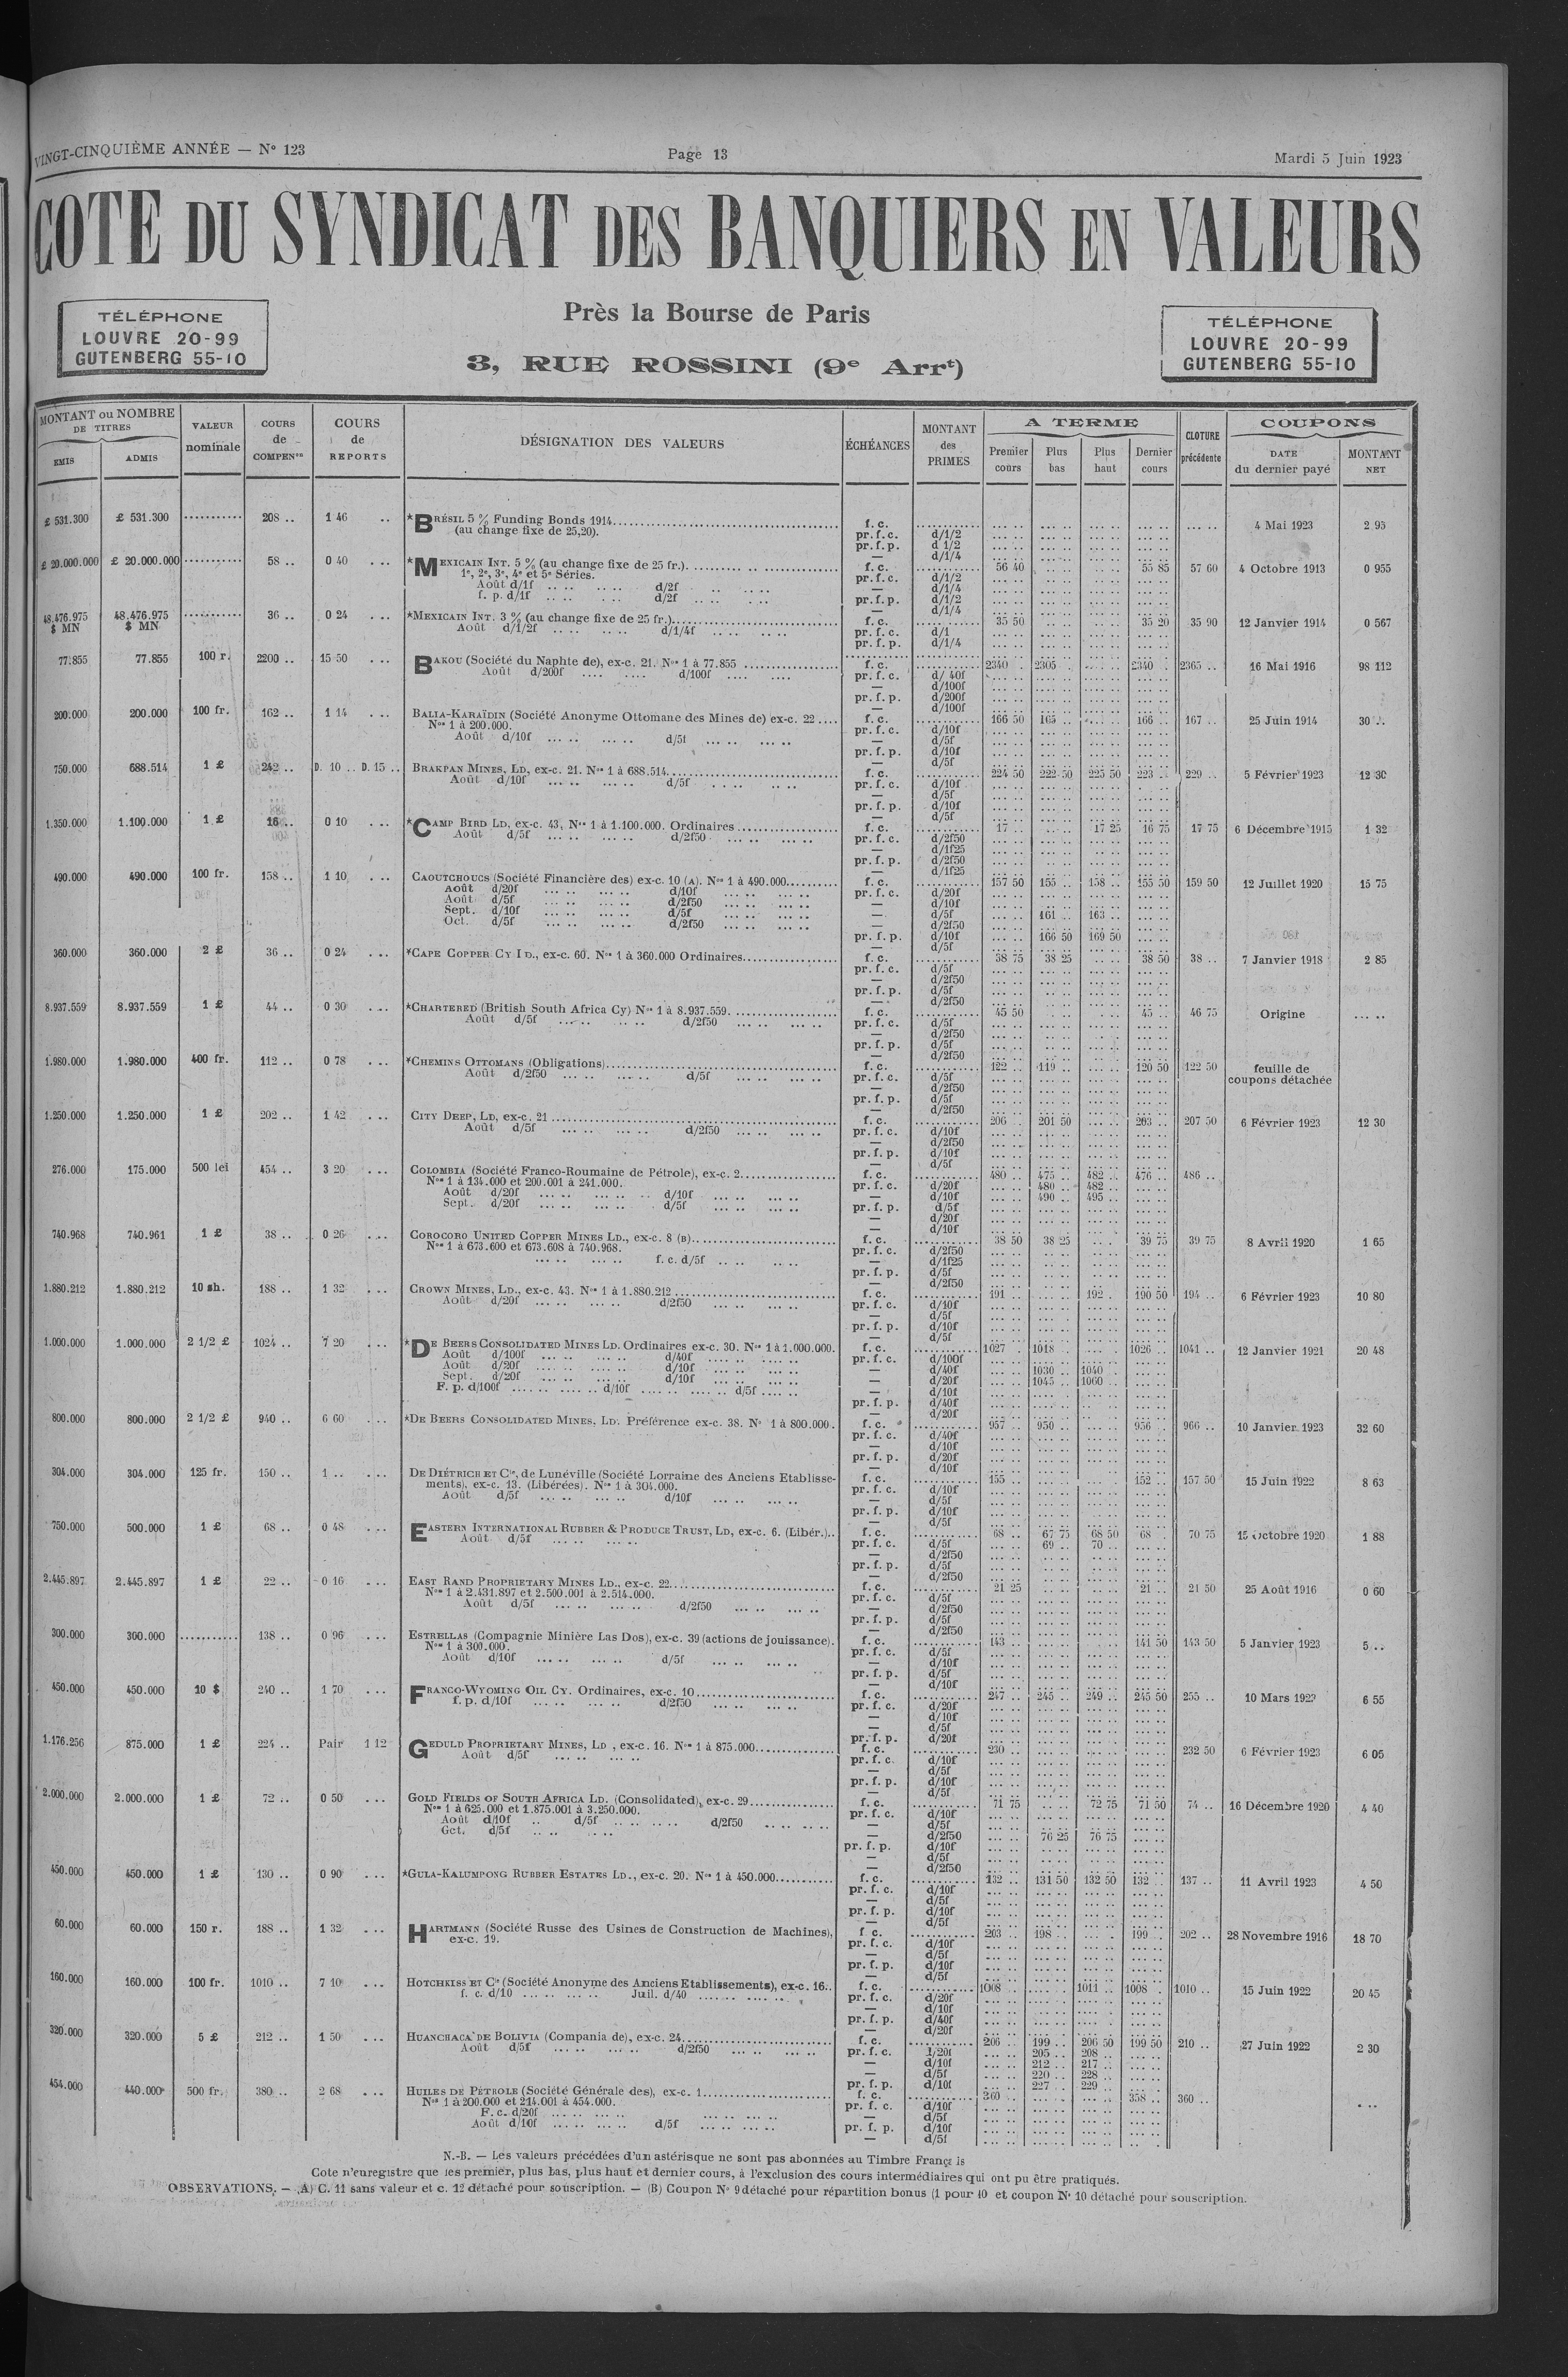 VINGT-CINQUIÈME ANNÉE — N° 123 Page 13 Mardi 5 Juin 1923
COTE DU SYNDICAT DES BANQUIERS EN VALEURS
TÉLÉPHONE
LOUVRE 20-99
GUTENBERG 55-10
Près la Bourse de Paris
3, RUE ROSSINI (9e Arrt)
TÉLÉPHONE
LOUVRE 20-99
GUTENBERG 55-10
MONTANT ou NOMBRE DE TITRES
EMIS ADMIS
VALEUR nominale
COURS de COMPENon
COURS de REPORTS
DÉSIGNATION DES VALEURS
ÉCHÉANCES
MONTANT des PRIMES
A TERME
Premier cours Plus bas Plus haut Dernier cours
CLOTURE précédente
COUPONS
DATE du dernier payé MONTANT NET
£ 531.300 £ 531.300 208 .. 1 46 *BRÉSIL 5 % Funding Bonds 1914 f. c. 4 Mai 1923 2 95
(au change fixe de 25,20). pr. f. c. d/1/2
pr. f. p. d 1/2
— d/1/4
£ 20.000.000 £ 20.000.000 58 .. 0 40 *MEXICAIN INT. 5 % (au change fixe de 25 fr.) f. c. 56 40 55 85 57 60 4 Octobre 1913 0 955
1e, 2e, 3e, 4e et 5e Séries. pr. f. c. d/1/2
Août d/1f d/2f — d/1/4
f. p. d/1f d/2f pr. f. p. d/1/2
— d/1/4
48.476.975 $ MN 48.476.975 $ MN 36 .. 0 24 *MEXICAIN INT. 3 % (au change fixe de 25 fr.) f. c. 35 50 35 20 35 90 12 Janvier 1914 0 567
Août d/1/2f d/1/4f pr. f. c. d/1
pr. f. p. d/1/4
77.855 77.855 100 r. 2200 .. 15 50 BAKOU (Société du Naphte de), ex-c. 21. Nos 1 à 77.855 f. c. 2340 2305 2340 2365 .. 16 Mai 1916 98 112
Août d/200f d/100f pr. f. c. d/ 40f
— d/100f
pr. f. p. d/200f
— d/100f
200.000 200.000 100 fr. 162 .. 1 14 BALIA-KARAÏDIN (Société Anonyme Ottomane des Mines de) ex-c. 22 f. c. 166 50 165 .. 166 .. 167 .. 25 Juin 1914 30
Nos 1 à 200.000. pr. f. c. d/10f
Août d/10f d/5f — d/5f
pr. f. p. d/10f
— d/5f
750.000 688.514 1 £ 242 .. D. 10 .. D. 15 .. BRAKPAN MINES, LD, ex-c. 21. Nos 1 à 688.514 f. c. 224 50 222 50 225 50 223 .. 229 .. 5 Février 1923 12 30
Août d/10f d/5f pr. f. c. d/10f
— d/5f
pr. f. p. d/10f
— d/5f
1.350.000 1.100.000 1 £ 16 .. 0 10 *CAMP BIRD LD, ex-c. 43, Nos 1 à 1.100.000. Ordinaires f. c. 17 .. 17 25 16 75 17 75 6 Décembre 1915 1 32
Août d/5f d/2f50 pr. f. c. d/2f50
— d/1f25
pr. f. p. d/2f50
— d/1f25
490.000 490.000 100 fr. 158 .. 1 10 CAOUTCHOUCS (Société Financière des) ex-c. 10 (A). Nos 1 à 490.000 f. c. 157 50 155 .. 158 .. 155 50 159 50 12 Juillet 1920 15 75
Août d/20f d/10f pr. f. c. d/20f
Août d/5f d/2f50 — d/10f
Sept. d/10f d/5f — d/5f 161 .. 163 ..
Oct. d/5f d/2f50 — d/2f50
pr. f. p. d/10f 166 50 169 50
— d/5f
360.000 360.000 2 £ 36 .. 0 24 *CAPE COPPER CY LD., ex-c. 60. Nos 1 à 360.000 Ordinaires f. c. 38 75 38 25 38 50 38 .. 7 Janvier 1918 2 85
pr. f. c. d/5f
— d/2f50
pr. f. p. d/5f
— d/2f50
8.937.559 8.937.559 1 £ 44 .. 0 30 *CHARTERED (British South Africa Cy) Nos 1 à 8.937.559. f. c. 45 50 45 .. 46 75 Origine
Août d/5f d/2f50 pr. f. c. d/5f
— d/2f50
pr. f. p. d/5f
— d/2f50
1.980.000 1.980.000 400 fr. 112 .. 0 78 *CHEMINS OTTOMANS (Obligations) f. c. 122 .. 119 .. 120 50 122 50 feuille de
Août d/2f50 d/5f pr. f. c. d/5f coupons détachée
— d/2f50
pr. f. p. d/5f
— d/2f50
1.250.000 1.250.000 1 £ 202 .. 1 42 CITY DEEP, LD, ex-c. 21 f. c. 206 201 50 203 .. 207 50 6 Février 1923 12 30
Août d/5f d/2f50 pr. f. c. d/10f
— d/2f50
pr. f. p. d/10f
— d/5f
276.000 175.000 500 lei 454 .. 3 20 COLOMBIA (Société Franco-Roumaine de Pétrole), ex-c. 2 f. c. 480 475 .. 482 .. 476 .. 486 ..
Nos 1 à 134.000 et 200.001 à 241.000. pr. f. c. d/20f 480 .. 482 ..
Août d/20f d/10f — d/10f 490 .. 495 ..
Sept. d/20f d/5f pr. f. p. d/5f
— d/20f
— d/10f
740.968 740.961 1 £ 38 .. 0 26 COROCORO UNITED COPPER MINES LD., ex-c. 8 (B) f. c. 38 50 38 25 39 75 39 75 8 Avril 1920 1 65
Nos 1 à 673.600 et 673.608 à 740.968. pr. f. c. d/2f50
f. c. d/5f — d/1f25
pr. f. p. d/5f
— d/2f50
1.880.212 1.880.212 10 sh. 188 .. 1 32 CROWN MINES, LD., ex-c. 43. Nos 1 à 1.880.212 f. c. 191 192 190 50 194 .. 6 Février 1923 10 80
Août d/20f d/2f50 pr. f. c. d/10f
— d/5f
pr. f. p. d/10f
— d/5f
1.000.000 1.000.000 2 1/2 £ 1024 .. 7 20 *DE BEERS CONSOLIDATED MINES LD. Ordinaires ex-c. 30. Nos 1 à 1.000.000. f. c. 1027 1018 1026 1041 .. 12 Janvier 1921 20 48
Août d/100f d/40f pr. f. c. d/100f
Août d/20f d/10f — d/40f 1030 1040
Sept. d/20f d/10f — d/20f 1045 1060
F. p. d/100f d/10f d/5f — d/10f
pr. f. p. d/40f
— d/20f
800.000 800.000 2 1/2 £ 940 .. 6 60 *DE BEERS CONSOLIDATED MINES, LD. Préférence ex-c. 38. N° 1 à 800.000. f. c. 957 .. 950 .. 956 .. 966 .. 10 Janvier 1923 32 60
pr. f. c. d/40f
— d/10f
pr. f. p. d/20f
— d/10f
304.000 304.000 125 fr. 150 .. 1 .. DE DIÉTRICH ET Cie, de Lunéville (Société Lorraine des Anciens Etablisse- f. c. 155 .. 152 .. 157 50 15 Juin 1922 8 63
ments), ex-c. 13. (Libérées). Nos 1 à 304.000. pr. f. c. d/10f
Août d/5f d/10f — d/5f
pr. f. p. d/10f
— d/5f
750.000 500.000 1 £ 68 .. 0 48 EASTERN INTERNATIONAL RUBBER & PRODUCE TRUST, LD, ex-c. 6. (Libér.) f. c. 68 .. 67 75 68 50 68 70 75 15 Octobre 1920 1 88
Août d/5f pr. f. c. d/5f 69 .. 70 ..
— d/2f50
pr. f. p. d/5f
— d/2f50
2.445.897 2.445.897 1 £ 22 .. 0 16 EAST RAND PROPRIETARY MINES LD., ex-c. 22 f. c. 21 25 21 .. 21 50 25 Août 1916 0 60
Nos 1 à 2.431.897 et 2.500.001 à 2.514.000. pr. f. c. d/5f
Août d/5f d/2f50 — d/2f50
pr. f. p. d/5f
— d/2f50
300.000 300.000 138 .. 0 96 ESTRELLAS (Compagnie Minière Las Dos), ex-c. 39 (actions de jouissance). f. c. 143 .. 141 50 143 50 5 Janvier 1923 5 ..
Nos 1 à 300.000. pr. f. c. d/5f
Août d/10f d/5f — d/10f
pr. f. p. d/5f
— d/10f
450.000 450.000 10 $ 240 .. 1 70 FRANCO-WYOMING OIL CY. Ordinaires, ex-c. 10 f. c. 247 .. 245 .. 249 .. 245 50 255 .. 10 Mars 1923 6 55
f. p. d/10f d/2f50 pr. f. c. d/20f
— d/10f
— d/5f
pr. f. p. d/20f
1.176.256 875.000 1 £ 224 .. Pair 1 12 GEDULD PROPRIETARY MINES, LD , ex-c. 16. Nos 1 à 875.000 f. c. 230 .. 232 50 6 Février 1923 6 05
Août d/5f pr. f. c. d/10f
— d/5f
pr. f. p. d/10f
— d/5f
2.000.000 2.000.000 1 £ 72 .. 0 50 GOLD FIELDS OF SOUTH AFRICA LD. (Consolidated), ex-c. 29 f. c. 71 75 72 75 71 50 74 .. 16 Décembre 1920 4 40
Nos 1 à 625.000 et 1.875.001 à 3.250.000. pr. f. c. d/10f
Août d/10f d/5f d/2f50 — d/5f
Oct. d/5f — d/2f50 76 25 76 75
pr. f. p. d/10f
— d/5f
— d/2f50
450.000 450.000 1 £ 130 .. 0 90 *GULA-KALUMPONG RUBBER ESTATES LD., ex-c. 20. Nos 1 à 450.000 f. c. 132 .. 131 50 132 50 132 .. 137 .. 11 Avril 1923 4 50
pr. f. c. d/10f
— d/5f
pr. f. p. d/10f
— d/5f
60.000 60.000 150 r. 188 .. 1 32 HARTMANN (Société Russe des Usines de Construction de Machines), f. c. 203 .. 198 .. 199 .. 202 .. 28 Novembre 1916 18 70
ex-c. 19. pr. f. c. d/10f
— d/5f
pr. f. p. d/10f
— d/5f
160.000 160.000 100 fr. 1010 .. 7 10 HOTCHKISS ET Cie (Société Anonyme des Anciens Etablissements), ex-c. 16.. f. c. 1008 1011 .. 1008 .. 1010 .. 15 Juin 1922 20 45
f. c. d/10 Juil. d/40 pr. f. c. d/20f
— d/10f
pr. f. p. d/40f
— d/20f
320.000 320.000 5 £ 212 .. 1 50 HUANCHACA DE BOLIVIA (Compania de), ex-c. 24 f. c. 206 .. 199 .. 206 50 199 50 210 .. 27 Juin 1922 2 30
Août d/5f d/2f50 pr. f. c. d/20f 205 .. 208 ..
— d/10f 212 .. 217 ..
— d/5f 220 .. 228 ..
pr. f. p. d/10f 227 .. 229 ..
454.000 440.000 500 fr. 380 .. 2 68 HUILES DE PÉTROLE (Société Générale des), ex-c. 1 f. c. 360 358 .. 360 ..
Nos 1 à 200.000 et 214.001 à 454.000. pr. f. c. d/10f
F. c. d/20f — d/5f
Août d/10f d/5f pr. f. p. d/10f
— d/5f
N.-B. — Les valeurs précédées d'un astérisque ne sont pas abonnées au Timbre Franç is
Cote n'enregistre que les premier, plus bas, plus haut et dernier cours, à l'exclusion des cours intermédiaires qui ont pu être pratiqués.
OBSERVATIONS. — A) C. 11 sans valeur et c. 12 détaché pour souscription. — (B) Coupon N° 9 détaché pour répartition bonus (1 pour 10 et coupon N° 10 détaché pour souscription.